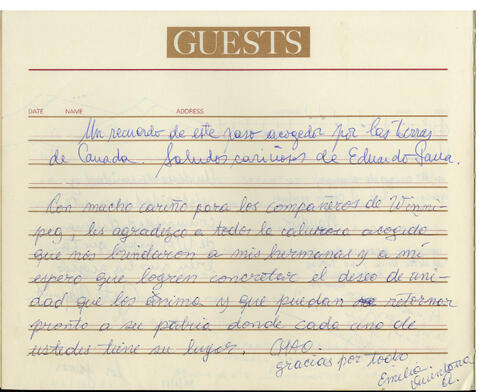 GUESTS
DATE NAME ADDRESS
Un recuerdo de este paso acogedor por las tierras
de Canada. Saludos cariñosos de Eduardo Parra.
Con mucho cariño para los compañeros de Winni-
peg, les agradezco a todos la calurosa acogida
que nos brindaron a mis hermanas y a mí
espero que logren concretar el deseo de uni-
dad que los anima y que puedan retornar
pronto a su patria donde cada uno de
ustedes tiene su lugar. CHAO.
gracias por todo
Emilia
Quintana